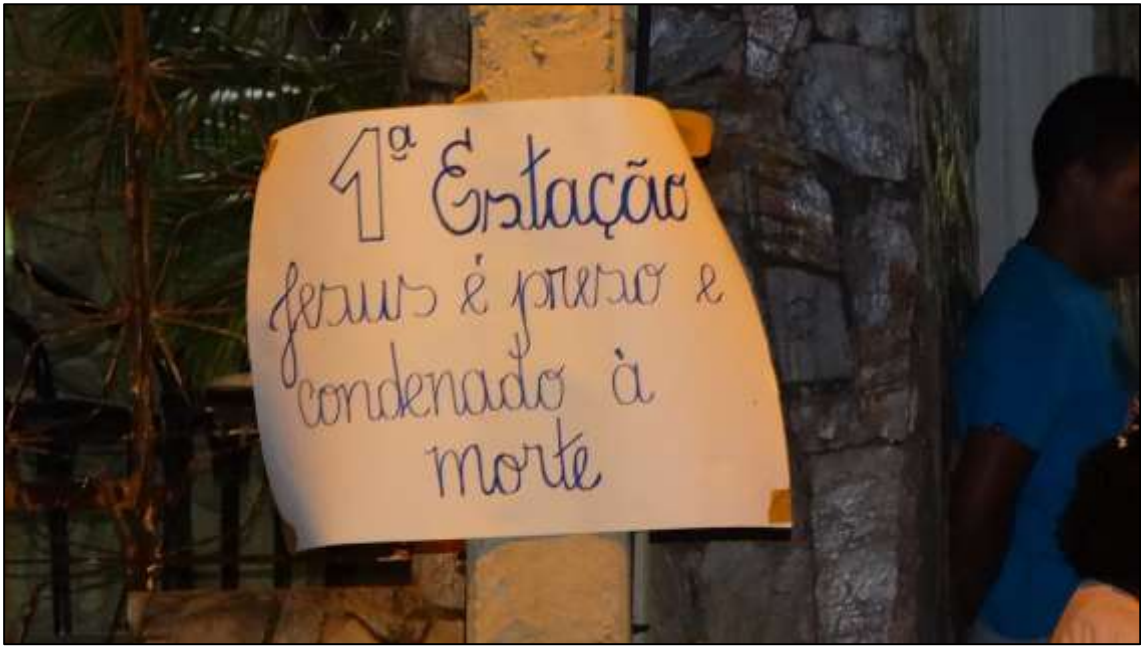 1ª Estação
Jesus é preso e
condenado à
morte